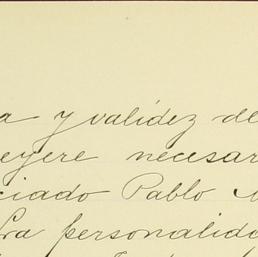 a y validez de
eyere necesar
ciado Pablo M
Gra personalida